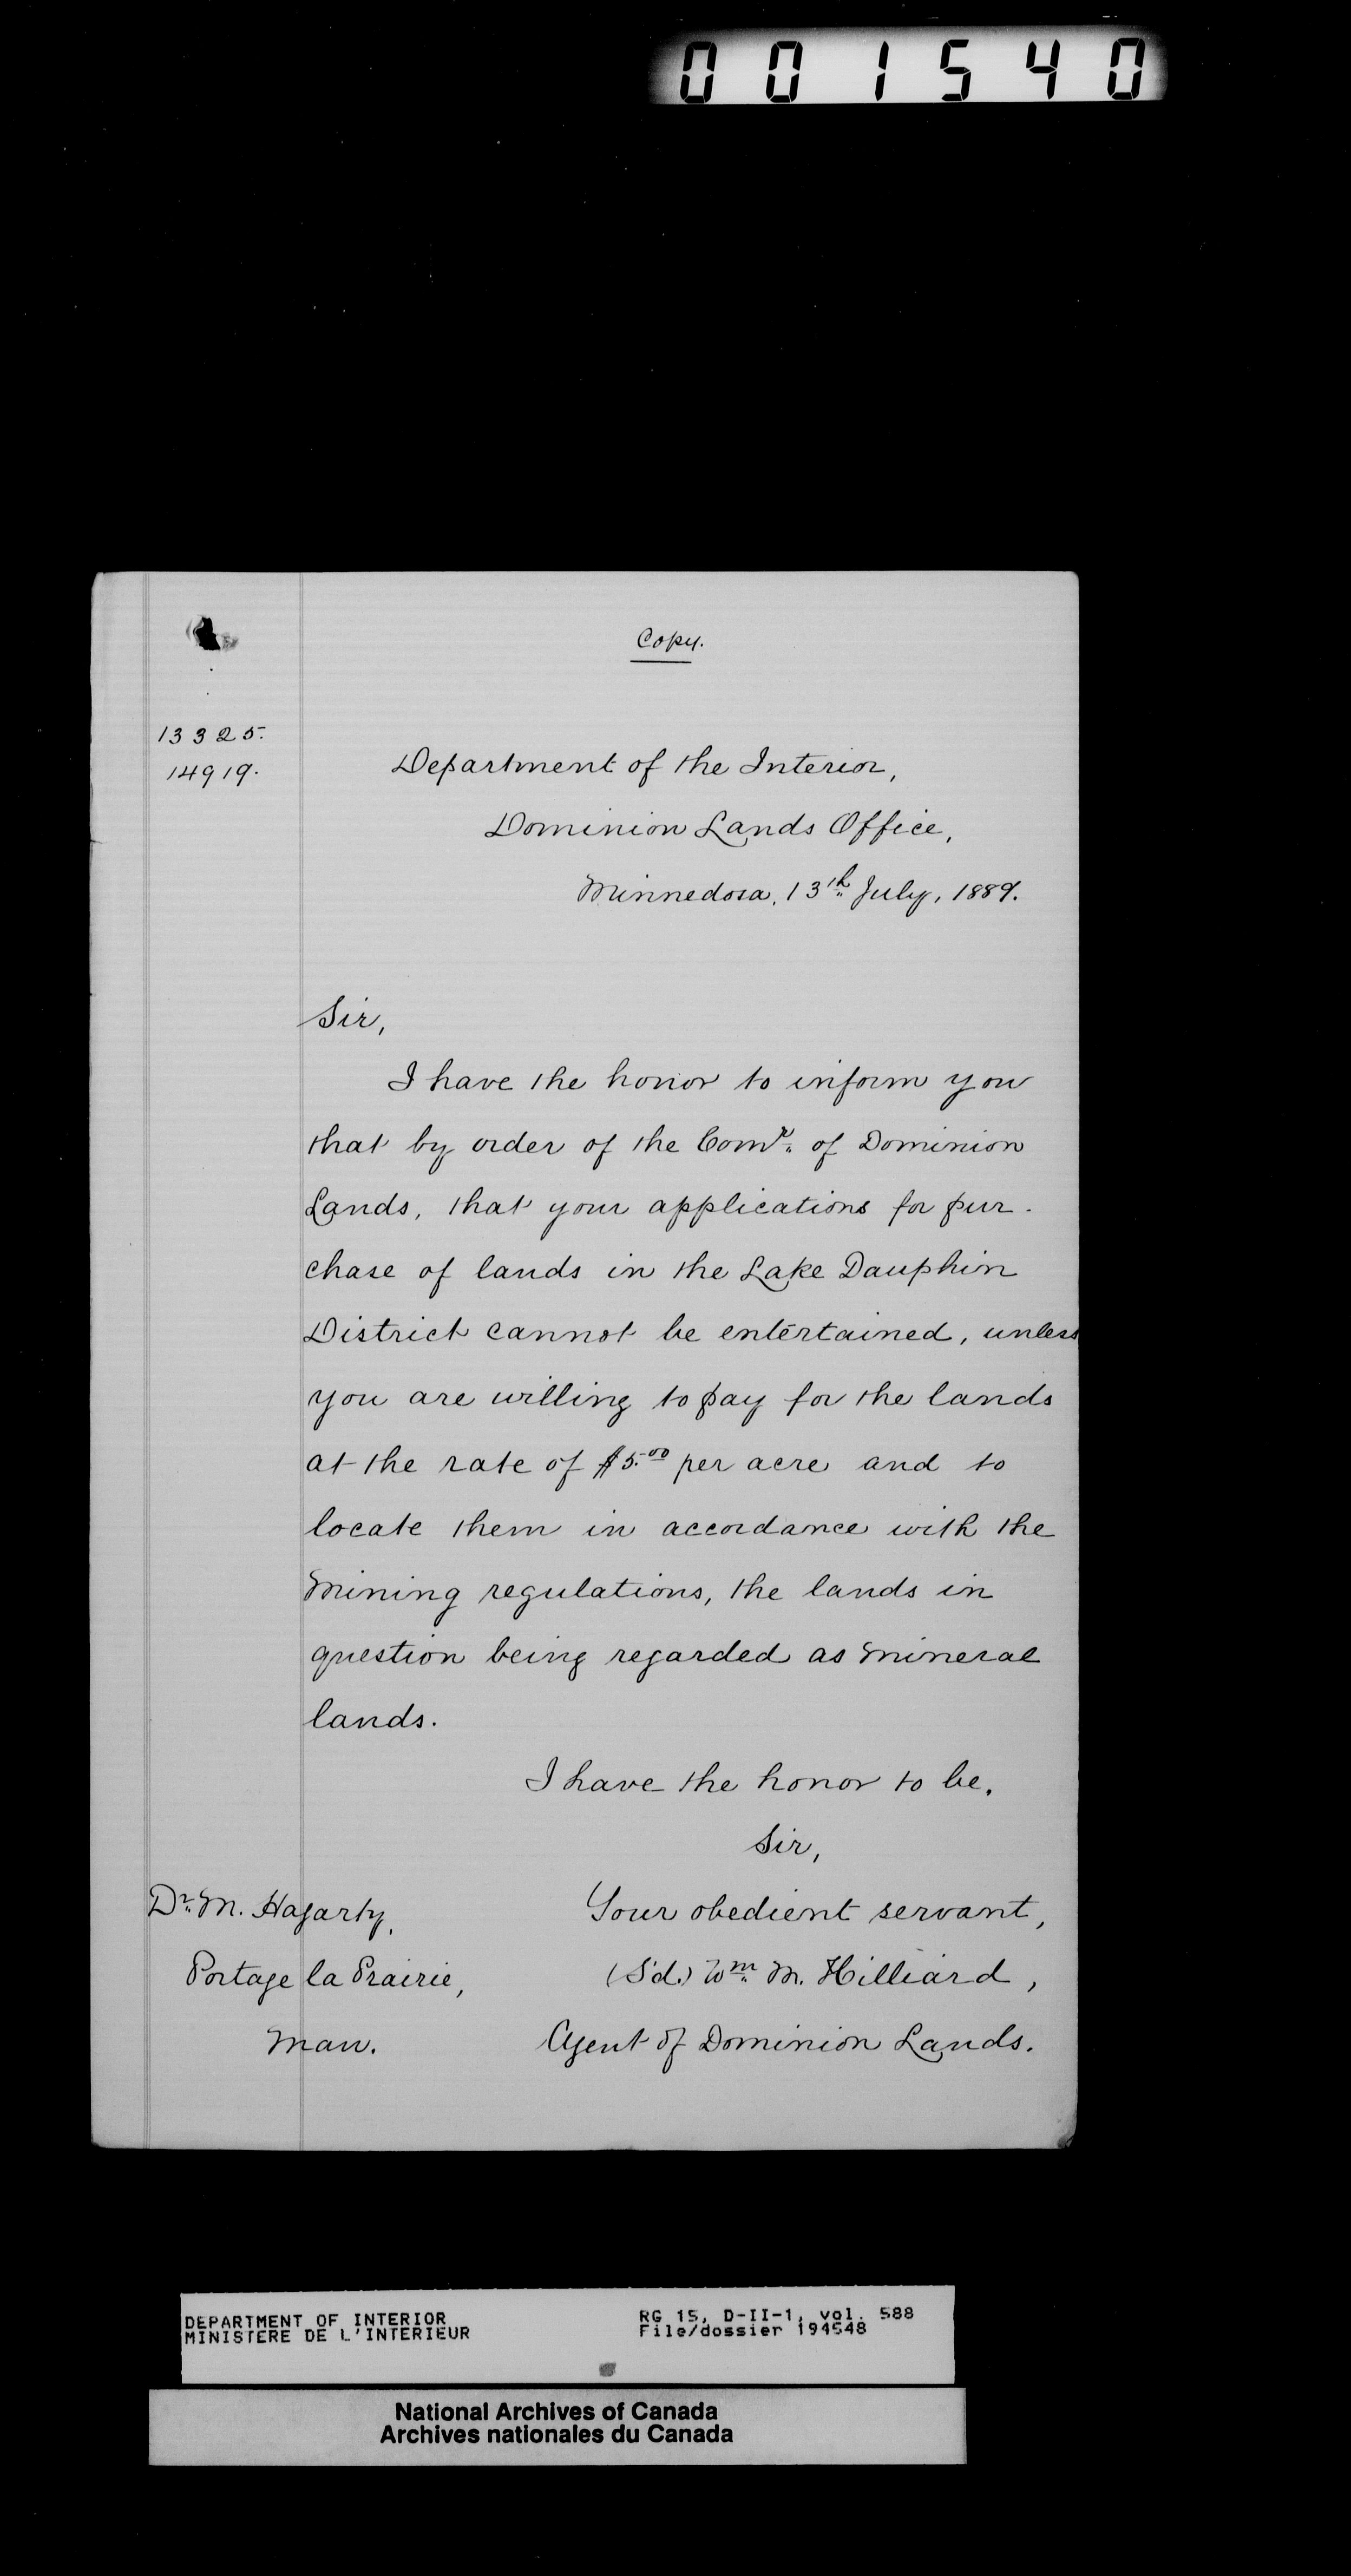 001540
Copy.
13325.
14919.
Department of the Interior,
Dominion Lands Office,
Minnedosa, 13th July, 1889.
Sir,
I have the honor to inform you
that by order of the Comr. of Dominion
Lands, that your applications for pur-
chase of lands in the Lake Dauphin
District cannot be entertained, unless
you are willing to pay for the lands
at the rate of $5.00 per acre and to
locate them in accordance with the
Mining regulations, the lands in
question being regarded as mineral
lands.
I have the honor to be,
Sir,
Your obedient servant,
(Sd.) Wm. M. Hilliard,
Agent of Dominion Lands.
Dr. M. Hagarty,
Portage la Prairie,
Man.
DEPARTMENT OF INTERIOR
MINISTERE DE L'INTERIEUR
RG 15, D-II-1, vol. 588
File/dossier 194548
National Archives of Canada
Archives nationales du Canada